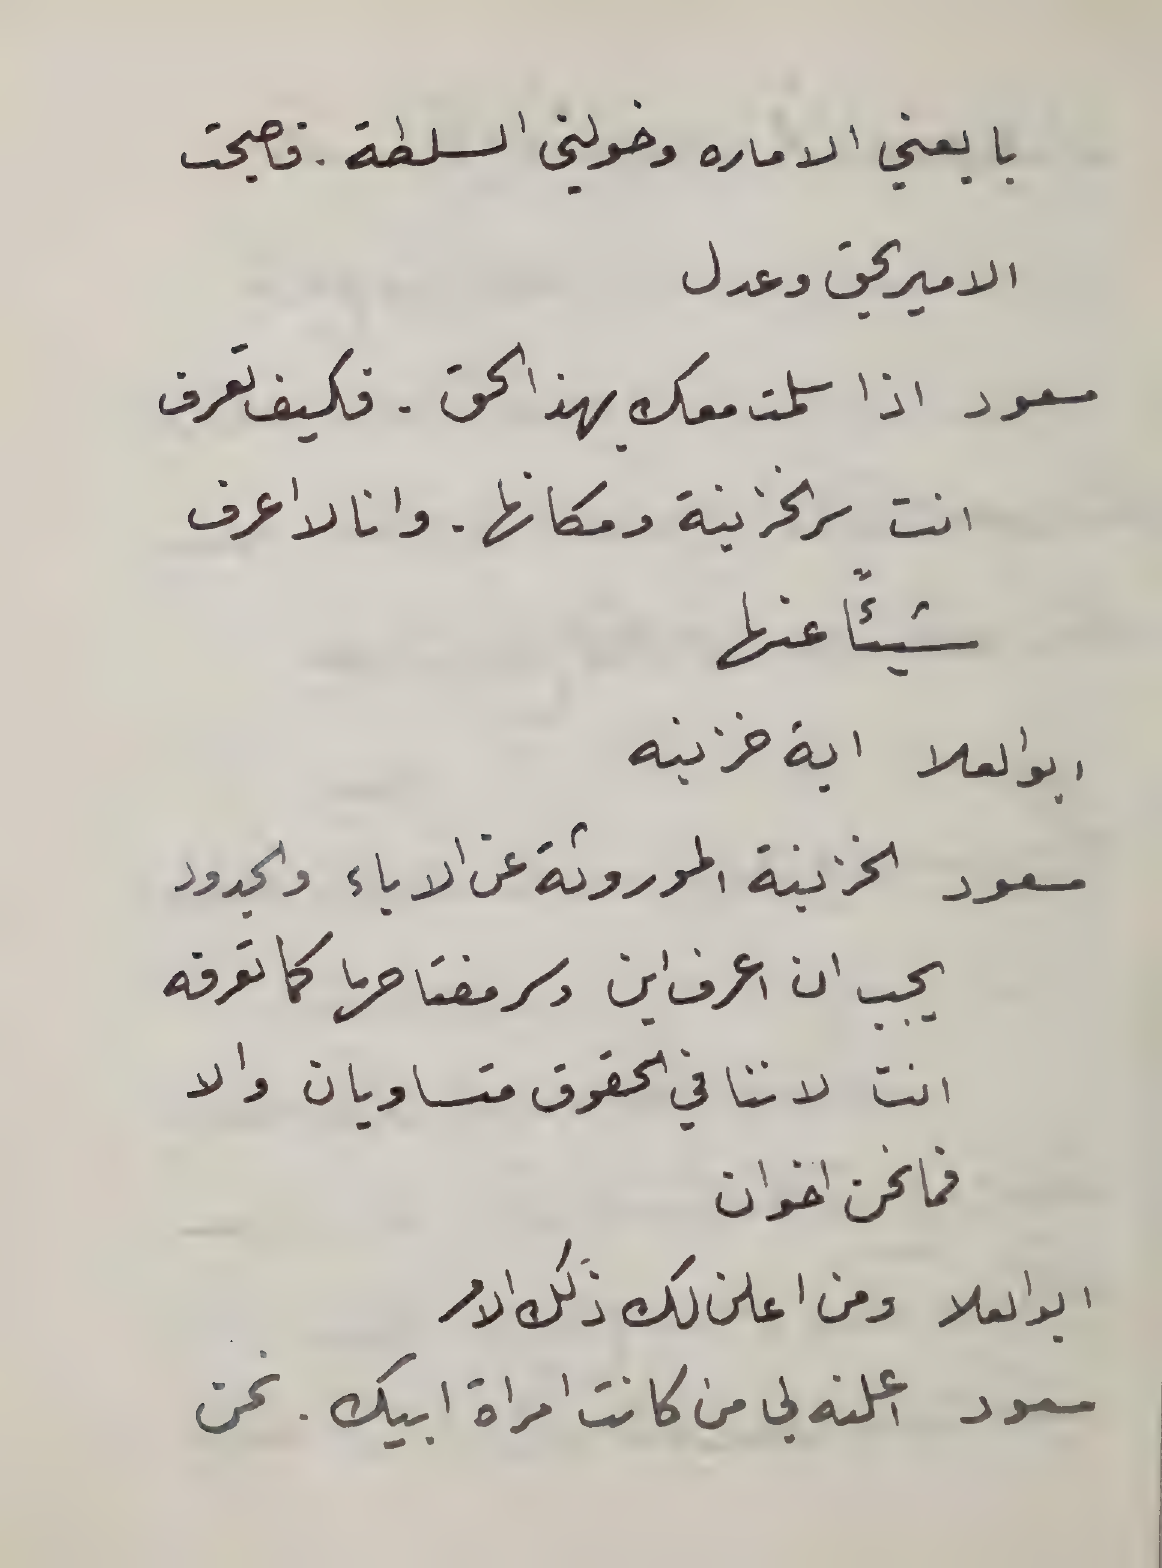 بايعني الاماره وخولني السلطة . فاصبحت
الامير بحق وعدل
مسعود اذا سلمت معك بهذا الحق . فكيف تعرف
انت سر الخزينة ومكانها . وانا لا اعرف
شيئًا عنها
ابو العلا اية خزينه
مسعود الخزينة الموروثة عن الاباء والجدود
يجب ان اعرف اين وسر مفتاحها كما تعرفه
انت لاننا في الحقوق متساويان والا
فما نحن اخوان
ابو العلا ومن اعلن لك ذلك الامر
مسعود اعلنه لي من كانت امراة ابيك . نحن